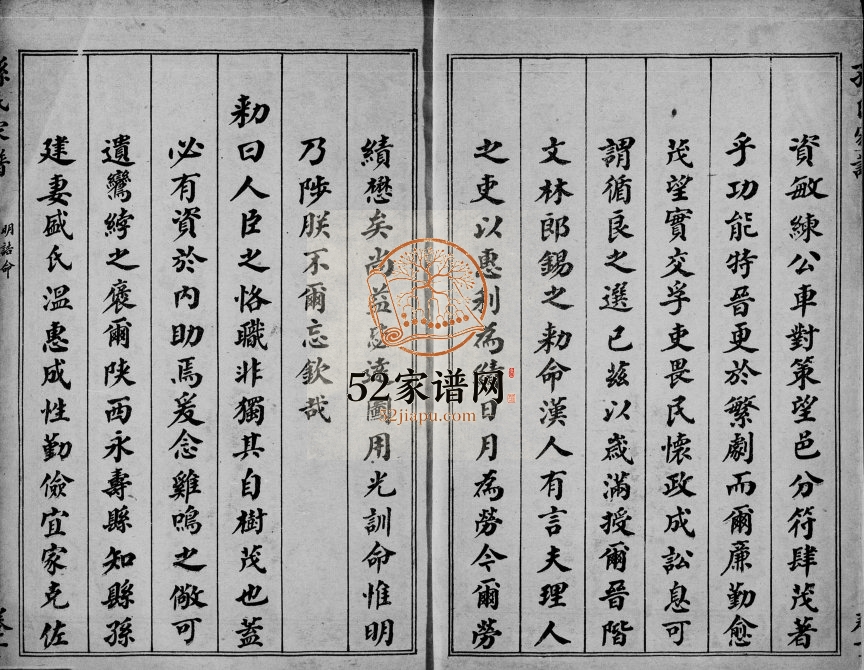 資敏練公車對策望邑分符肆茂著
乎功能特晉更於繁劇而爾廉勤愈
茂望實交孚吏畏民懷政成訟息可
謂循良之選已茲以歲滿授爾晉階
文林郎錫之勅命漢人有言夫理人
之吏以惠利為績日月為勞今爾勞
績懋矣尚益 國用光訓命惟明
乃陟朕不爾忘欽哉
勅曰人臣之恪職非獨其自樹茂也蓋
必有資於內助焉爰念雞鳴之儆可
遺鸞綍之褒爾陝西永壽縣知縣孫
建妻盛氏溫惠成性勤儉宜家克佐
孫氏家譜
明誥命
52家谱网
52jiapu.com